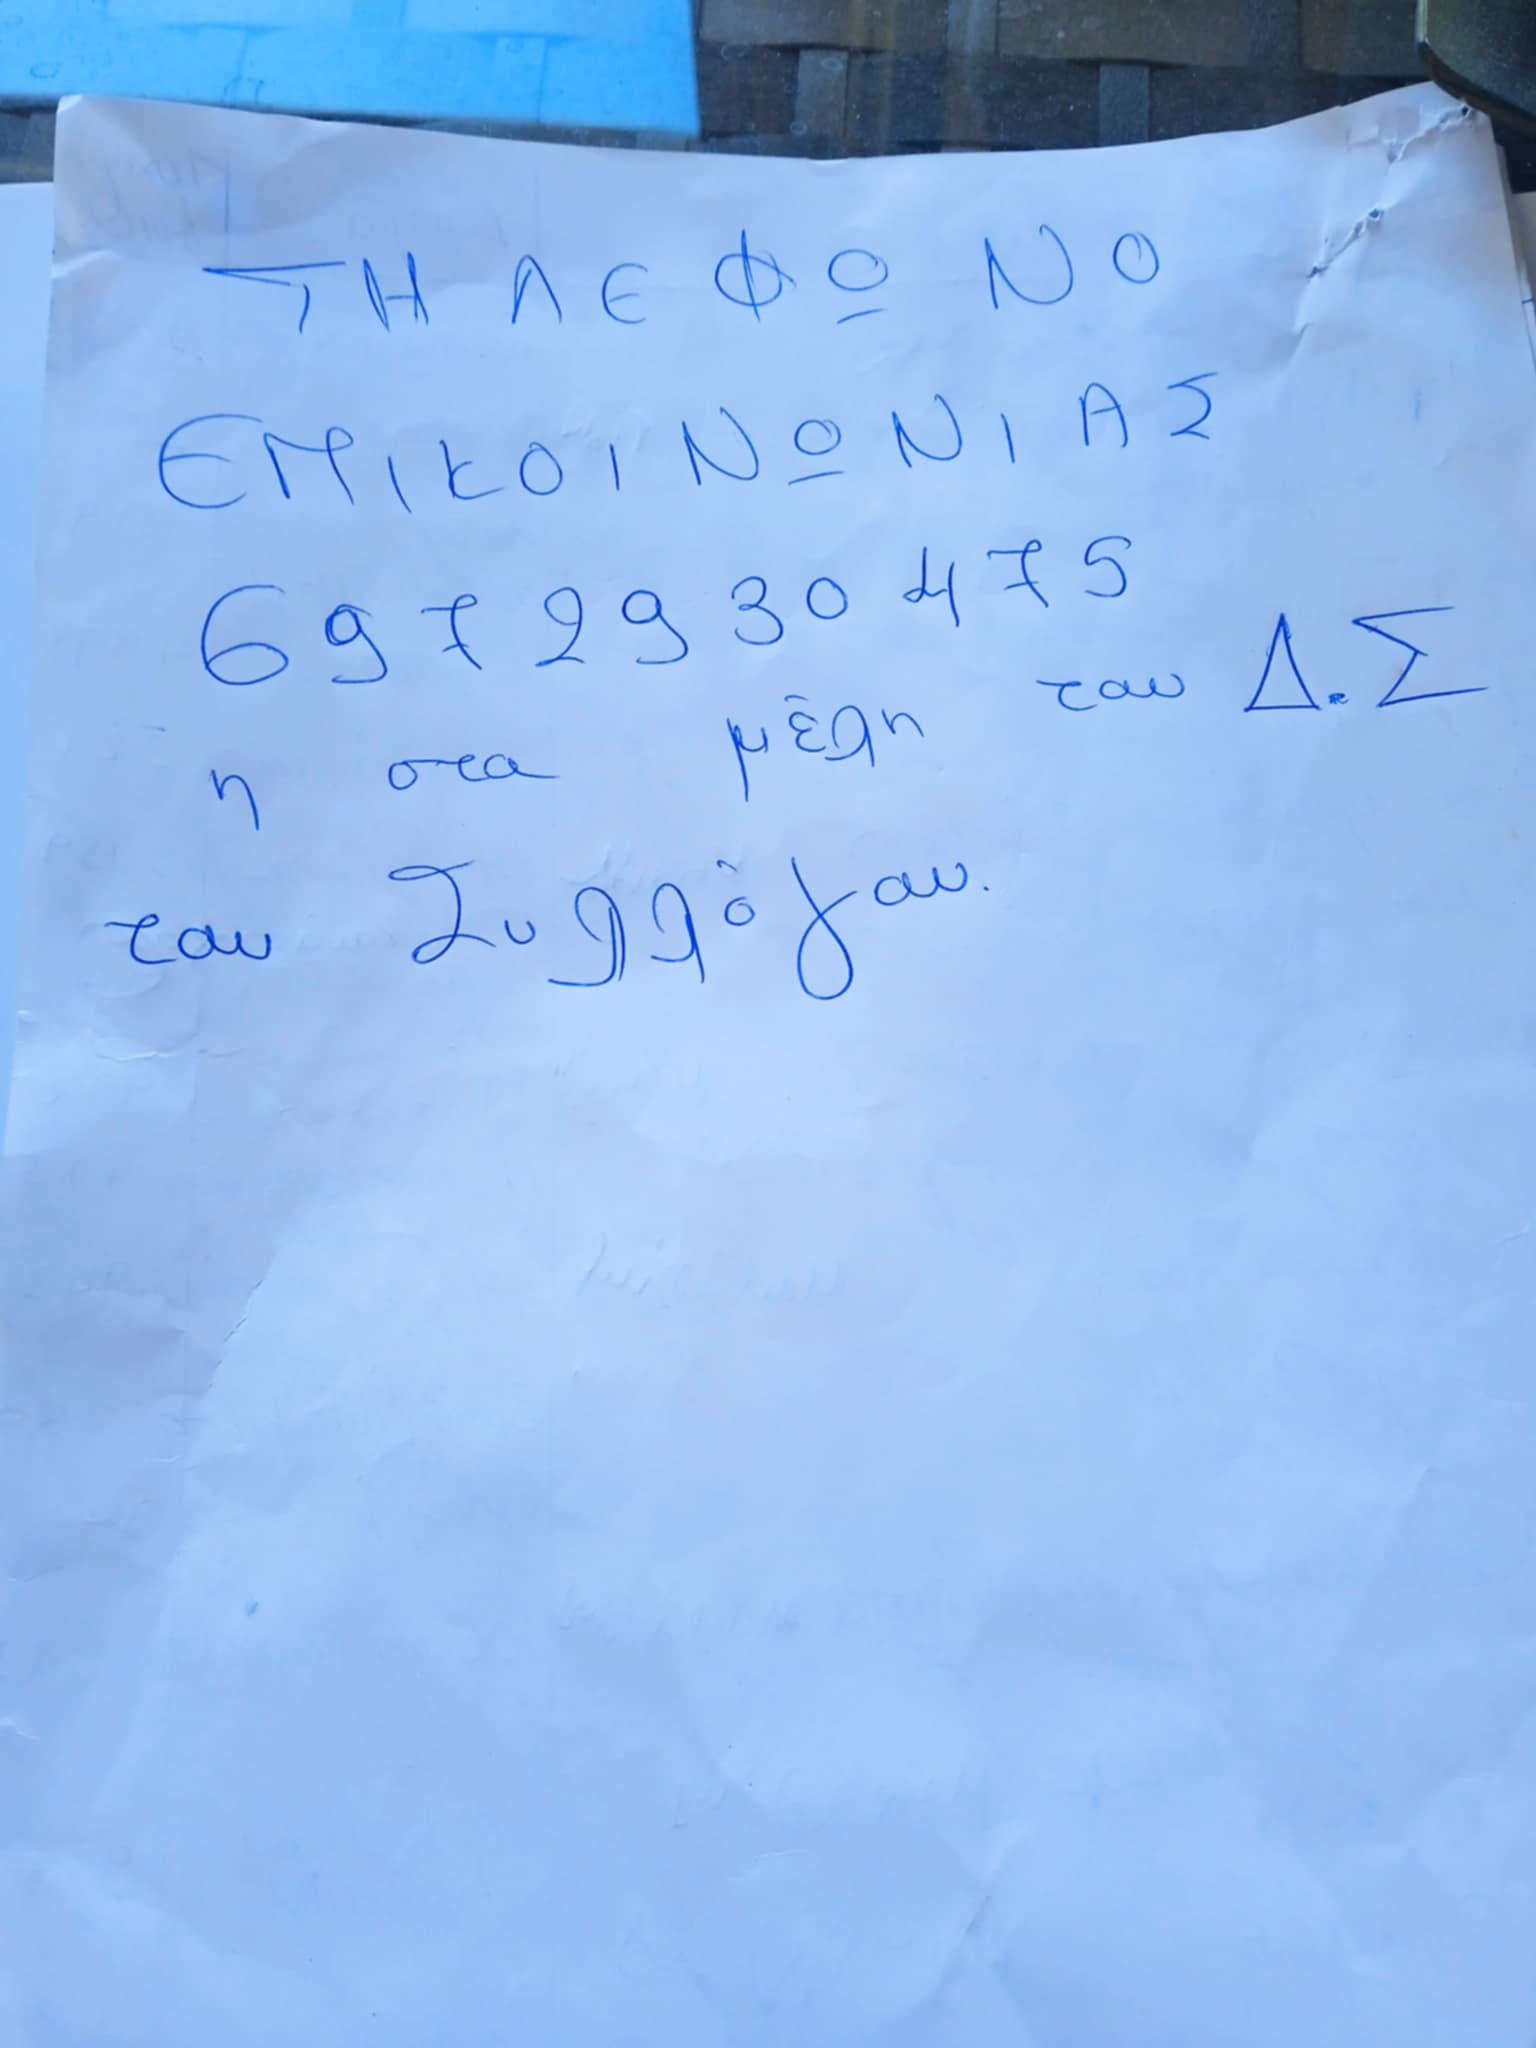 ΤΗΛΕΦΩΝΟ
ΕΠΙΚΟΙΝΩΝΙΑΣ
6972930475
η στα μέλη του Δ.Σ
του Συλλόγου.